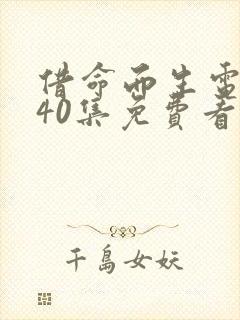 借命而生电
40集免費看
千島女妖